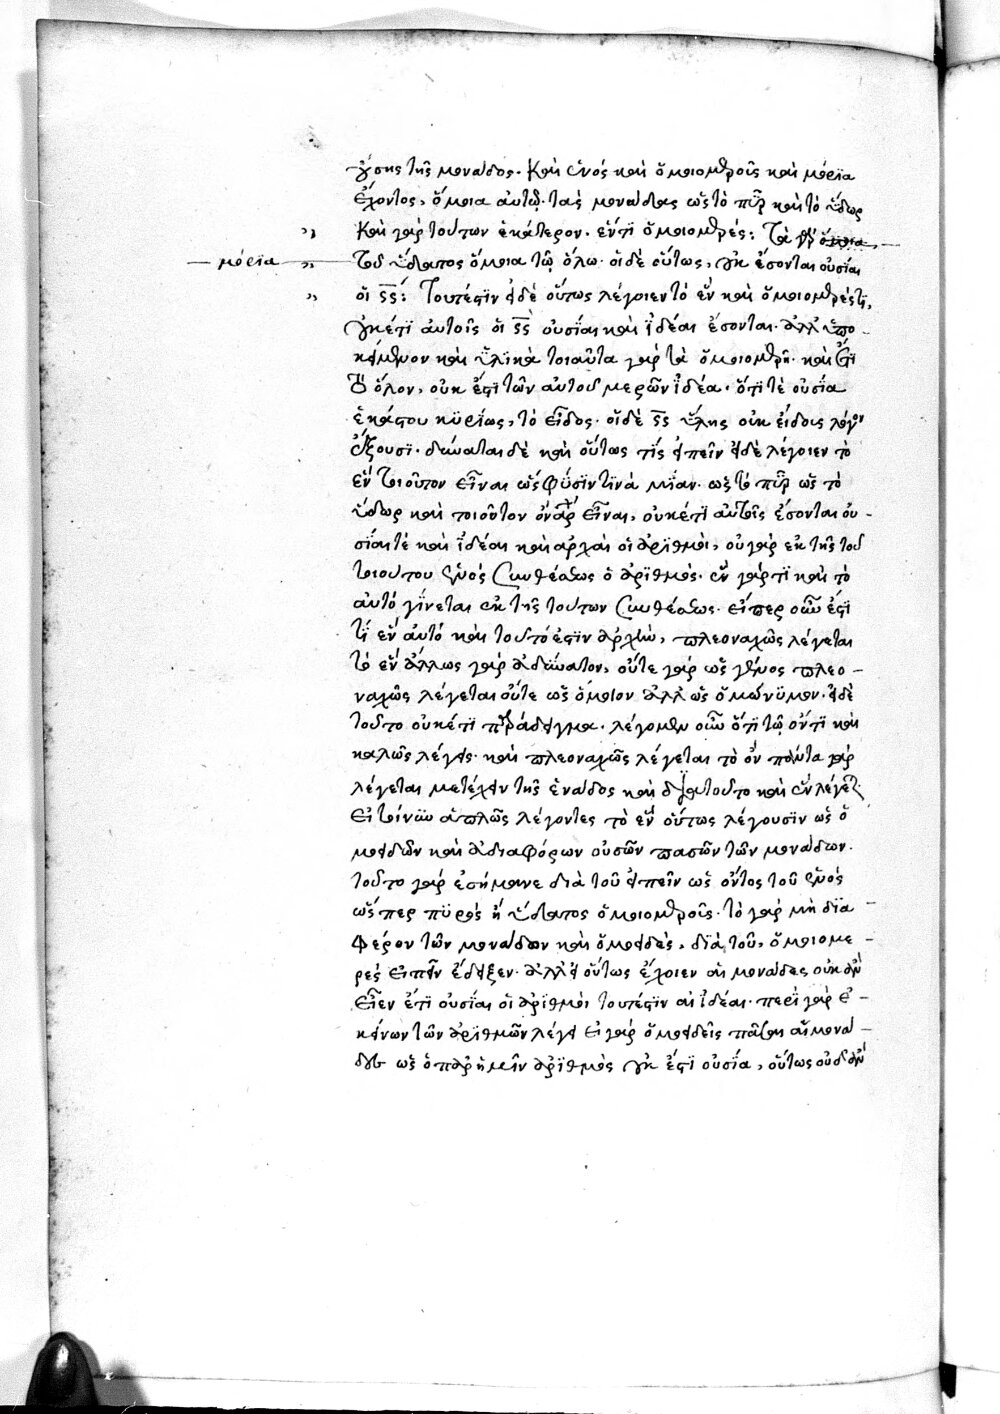 γούσης τῆς μονάδος. καὶ ἑνὸς καὶ ὁμοιομεροῦς καὶ μόρϊα
ἔχοντος, ὅμοια αὐτῷ. τὰς μονάδας ὡς τὸ πῦρ καὶ τὸ ὕδωρ
καὶ γὰρ τούτων ἑκάτερον. ἔντϊ ὁμοιομερές: Τὰ γὰρ
μόρϊα
τοῦ ὕδατος ὅμοια τῷ ὅλῳ. οἱ δὲ οὕτως, οὐκ ἔσονται οὐσίαι
οἱ ςςˊ: Τουτέστϊν εἰ δὲ οὕτως λέγοιεν τὸ ἓν καὶ ὁμοιομερές τι,
οὐκέτϊ αὐτοῖς οἱ ςςˊ οὐσίαι καὶ ἰδέαι ἔσονται. ἀλλ' ὑπο-
κείμενον καὶ ὑλϊκὰ τοιαῦτα γὰρ τὰ ὁμοιομερῆ. καὶ ἔτϊ
τὸ ὅλον, οὐκ ἔστϊ τῶν αὐτοῦ μερῶν ἰδέα. ὅτϊ τὲ οὐσΐα
ἑκάστου κϋρίως, τὸ εἶδος. οἱ δὲ ςςˊ ὕλης οὐκ εἴδους λόγον
ἕξουσϊ. δύναται δὲ καὶ οὕτως τὶς εἰπεῖν εἰ δὲ λέγοιεν τὸ
ἓν τοιοῦτον εἶναι ὡς φύσϊν τϊνὰ μΐαν. ὡς τὸ πῦρ ὡς τὸ
ὕδωρ καὶ τοιοῦτον εἶναι, οὐκέτϊ αὐτοῖς ἔσονται οὐ-
σΐαι τὲ καὶ ἰδέαι καὶ ἀρχαὶ οἱ ἀρϊθμοὶ, οὐ γὰρ ἐκ τῆς τοῦ
τοιούτου ἑνὸς συνθέσεως ὁ ἀρϊθμός. ἓν γάρ τϊ καὶ τὸ
αὐτό γΐνεται ἐκ τῆς τούτων συνθέσεως. εἴπερ οὖν ἐστϊ
τϊ ἓν αὐτὸ καὶ τοῦτό ἐστϊν ἀρχὴ, πλεοναχῶς λέγεται
τὸ ἓν ἄλλως γὰρ ἀδύνατον, οὔτε γὰρ ὡς γένος πλεο-
ναχῶς λέγεται οὔτε ὡς ὅμοιον ἀλλ' ὡς ὁμώνϋμον. εἰ δὲ
τοῦτο οὐκέτϊ παράδειγμα. λέγομεν οὖν ὅτϊ τῷ ὄντϊ καὶ
καλῶς λέγεις. καὶ πλεοναχῶς λέγεται τὸ ὂν πάντα γὰρ
λέγεται μετέχειν τῆς ἑνάδος καὶ διὰ τοῦτο καὶ ἓν λέγεται.
εἰ τοίνυν ἁπλῶς λέγοντες τὸ ἓν οὕτως λέγουσϊν ὡς ὁ
μοειδῶν καὶ ἀδιαφόρων οὐσῶν πασῶν τῶν μονάδων.
τοῦτο γὰρ ἐσήμαινε διὰ τοῦ εἰπεῖν ὡς ὄντος τοῦ ἑνὸς
ὥσπερ πϋρὸς ἢ ὕδατος ὁμοιομεροῦς. τὸ γὰρ μὴ δϊα-
φέρον τῶν μονάδων καὶ ὁμοειδὲς, δϊὰ τοῦ, ὁμοιομε-
ρὲς εἰπεῖν ἔδειξεν. ἀλλ' εἰ οὕτως ἔχοιεν αἱ μονάδες οὐκ ἂν
εἶεν ἔτϊ οὐσίαι οἱ ἀρϊθμοὶ τουτέστϊν αἱ ἰδέαι. περὶ γὰρ ἐ-
κείνων τῶν ἀρϊθμῶν λέγει εἰ γὰρ ὁμοειδεῖς πᾶσαι αἱ μονά-
δες ὡς ὁ παρ' ἡμῖν ἀρϊθμὸς οὐκ ἔστϊ οὐσία, οὕτως οὐδ' ἂν